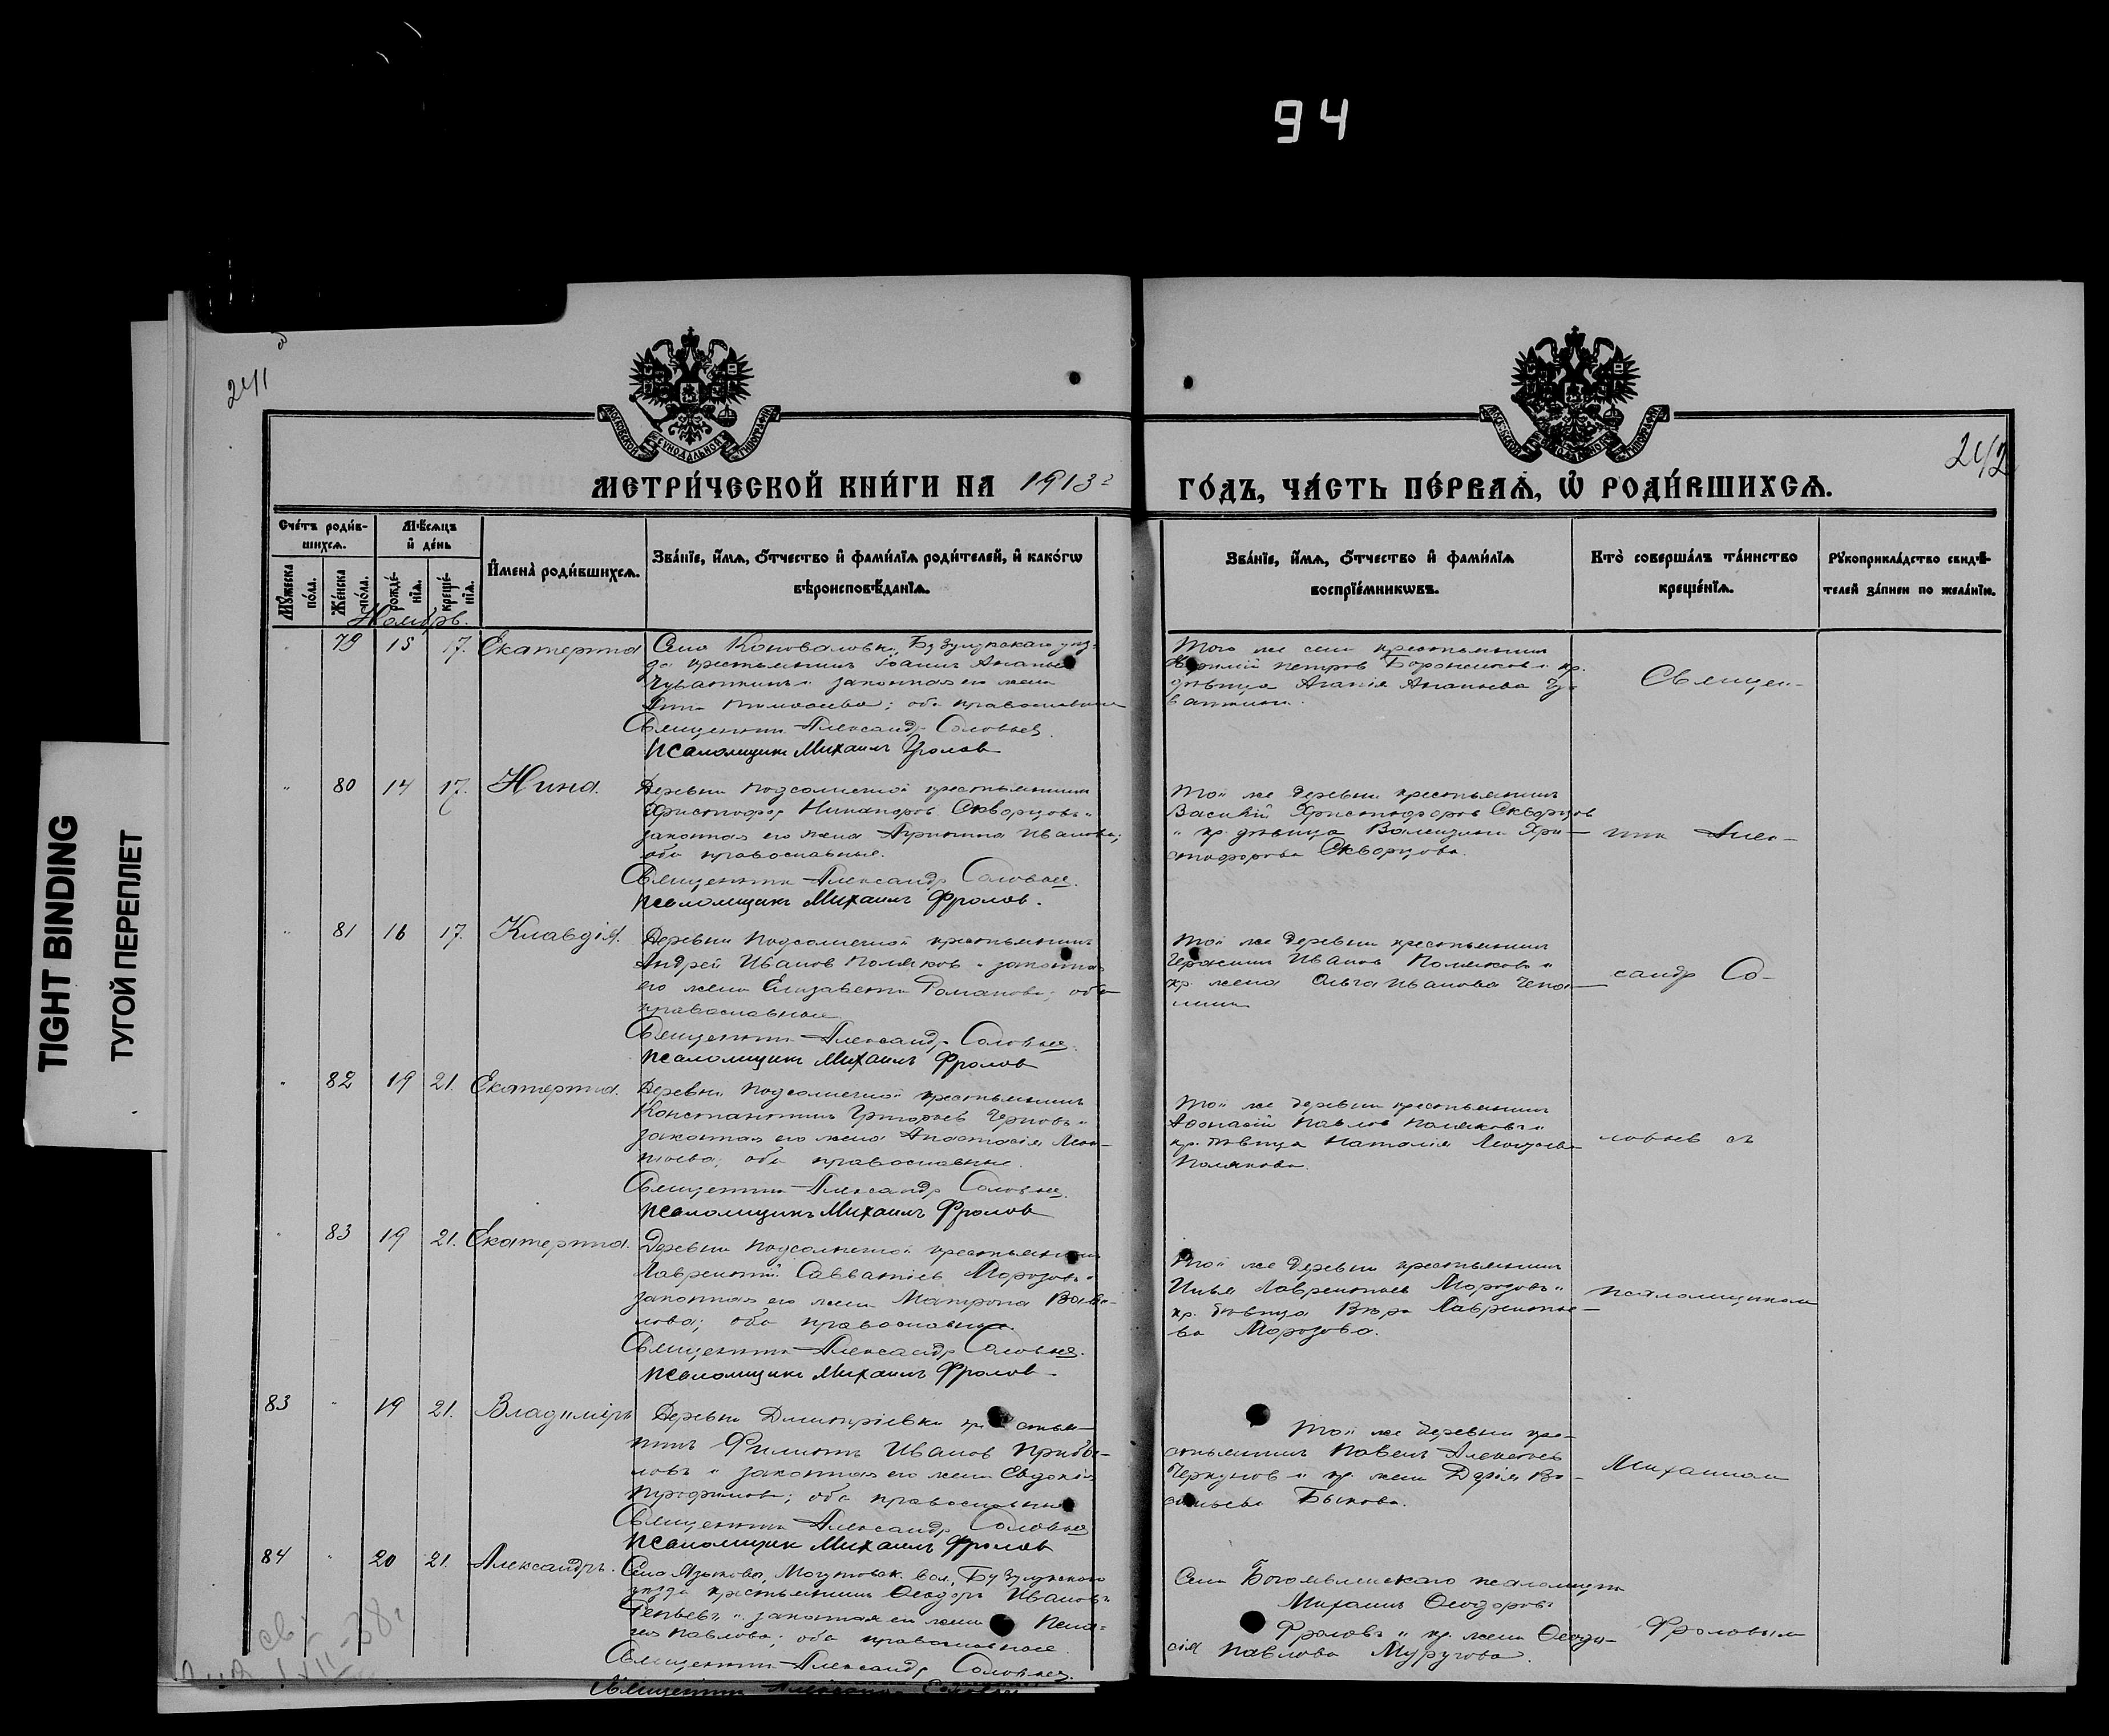 94
241
242
МОСКОВСКОЙ СѴНОДАЛЬНОЙ ТИПОГРАФІИ
МЕТРИ́ЧЕСКОЙ КНИ́ГИ НА 1913 г ГО́ДЪ, ЧА́СТЬ ПЕ́РВАѦ, Ѡ҆ РОДИ́ВШИХСѦ.
Сче́тъ роди́вшихсѧ.
Мѣ́сѧцъ и҆ де́нь
Мꙋ́жеска по́ла.
Же́нска по́ла.
рожде́нїѧ.
креще́нїѧ.
И҆мена̀ роди́вшихсѧ.
Зва́нїе, и҆́мѧ, ѻ҆́тчество и҆ фами́лїѧ роди́телей, и҆ како́гѡ
вѣроисповѣ́данїѧ.
Зва́нїе, и҆́мѧ, ѻ҆́тчество и҆ фами́лїѧ
воспрїе́мникѡвъ.
Кто̀ соверша́лъ та́инство
креще́нїѧ.
Рꙋкоприкла́дство свидѣ́-
телей за́писи по жела́нїю.
Ноябрь.
79 15 17. Екатерина
Села Коноваловки, Бузулукскаго уѣз-
да крестьянинъ Іоаннъ Ананьев
Чуваткинъ и законная его жена
Анна Тимофеева; оба православные
Священник Александр Соловьев.
Псаломщик Михаилъ Фролов
Того же села крестьянин
Петров и кр.
дѣвица Агапія Ананьева Чу-
ваткина.
Священ-
80 14 17. Нина.
Деревни Подсолнечной крестьянинъ
Христофор Никаноров Скворцовъ и
законная его жена Агрипина Иванова;
оба православные.
Священник Александр Соловьев.
Псаломщикъ Михаилъ Фролов.
Той же деревни крестьянинъ
Василій Христофоров Скворцов
и кр. дѣвица Валентина Хри-
стофорова Скворцова.
ник Алек-
81 16 17. Клавдія.
Деревни Подсолнечной крестьянинъ
Андрей Иванов Поляков и законная
его жена Елизавета Романова; оба
православные
Священник Александр Соловьев.
Псаломщик Михаилъ Фролов
Той же деревни крестьянин
Герасим Иванов Поляковъ и
кр. жена Ольга Иванова
сандр Со-
82 19 21. Екатерина.
Деревни Подсолнечной крестьянинъ
Константинъ Григорьев Черновъ и
законная его жена Анастасія Леон-
тьева; оба православные.
Священник Александр Соловьев.
Псаломщикъ Михаилъ Фролов
Той же деревни крестьянинъ
Афонасій Павлов Поляковъ и
кр. дѣвица Наталія
Полякова.
ловьев съ
83 19 21. Екатерина.
Деревни Подсолнечной крестьянинъ
Лаврентій Савватіев Морозовъ и
законная его жена Матрона Вави-
лова; оба православные.
Священник Александр Соловьев.
Псаломщик Михаилъ Фролов
Той же деревни крестьянинъ
Илья Лаврентьев Морозовъ и
кр. дѣвица Вѣра Лаврентье-
ва Морозова.
псаломщиком
83 19 21. Владиміръ
Деревни Дмитріевки крестья-
нинъ Филиппъ Иванов Прибы-
ловъ и законная его жена Евдокія
Трофимова; оба православные
Священник Александр Соловьев
Псаломщик Михаилъ Фролов
Той же деревни кре-
стьянинъ Павелъ Алексеев
Черкунов и кр. жена Дарія Ва-
сильева Быкова.
Михаилом
84 20 21. Александръ.
Села Языкова, Могутовск. вол., Бузулукскаго
уѣзда крестьянинъ Ѳеодоръ Ивановъ
и законная его жена Пела-
гея Павлова; оба православные
Священник Александр Соловьев.
Священник Александр Соловьев
Села Богоявленскаго псаломщик
Михаилъ Ѳеодоровъ
Фроловъ и кр. жена Ѳеодо-
сія Павлова Муругова.
Фроловым
TIGHT BINDING
ТУГОЙ ПЕРЕПЛЕТ